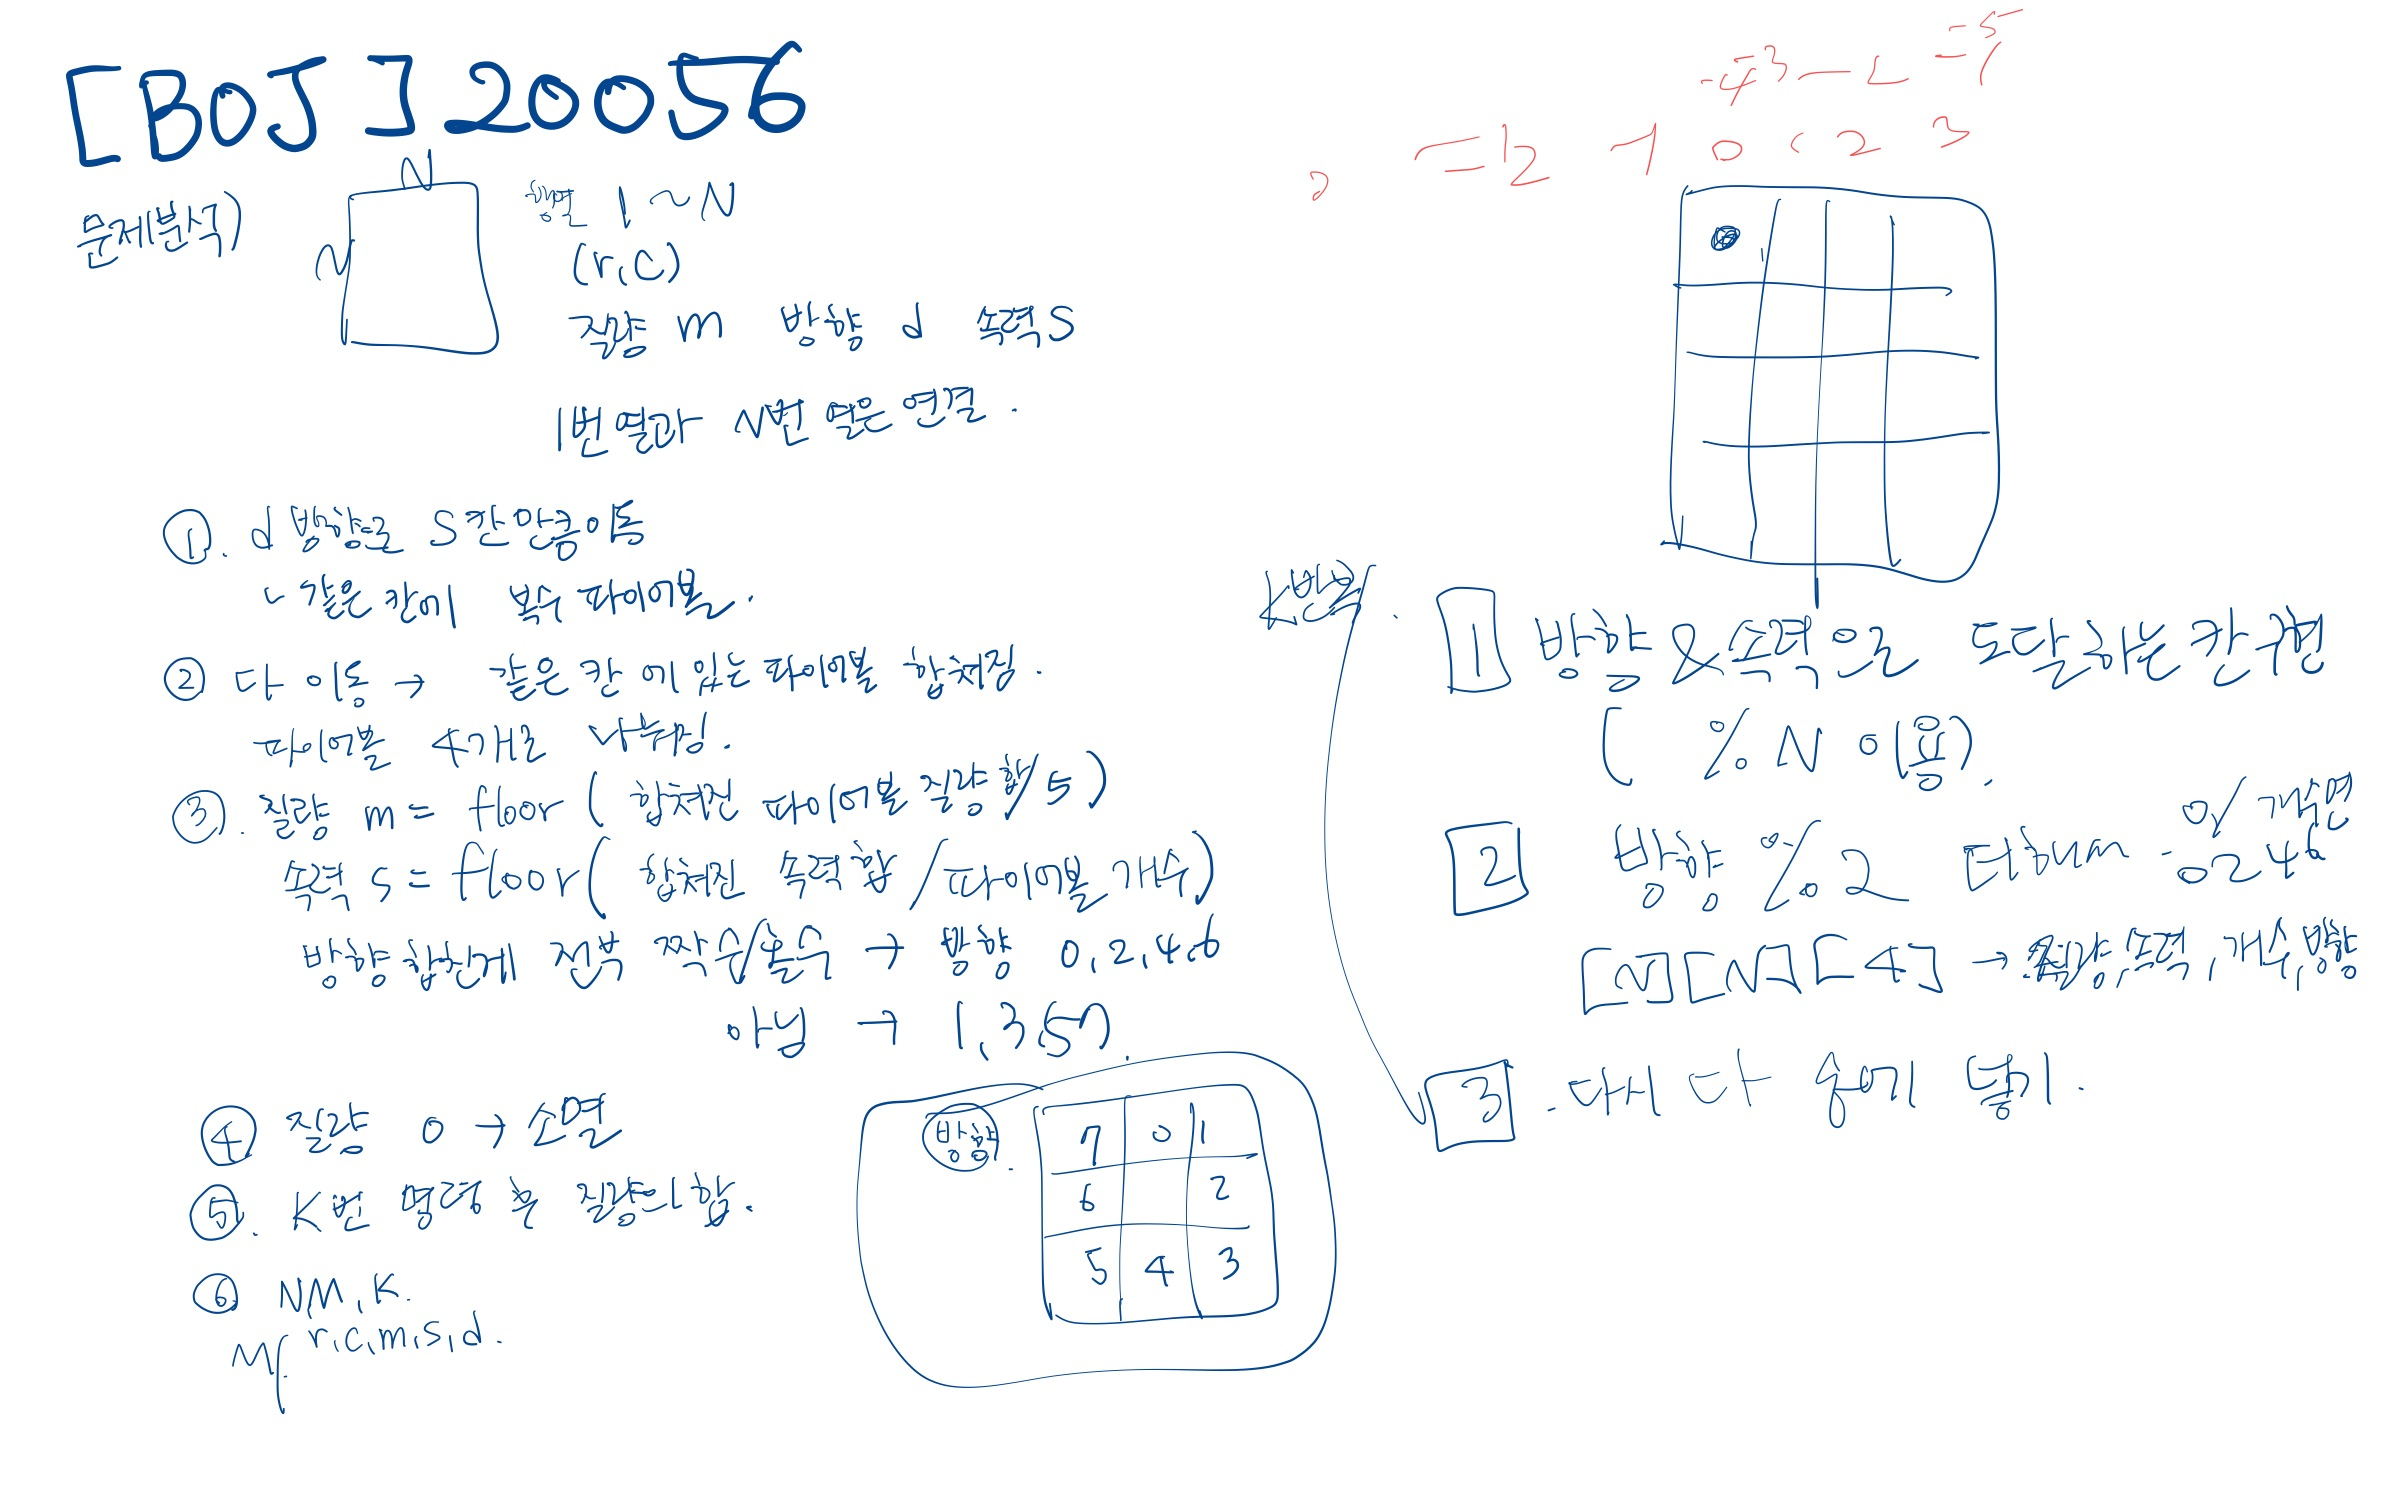 [BOJ] 20056
문제분석)
N
N
1 ~ N
(r, c)
질량 m 방향 d 속력 S
1번 열과 N번 열은 연결.
①. d방향으로 S칸 만큼 이동
같은 칸에 복수 파이어볼.
② 다 이동 → 같은 칸에 있는 파이어볼 합쳐짐.
파이어볼 4개로 나눠짐.
③. 질량 m = floor ( 합쳐진 파이어볼 질량 합/5 )
속력 s = floor( 합쳐진 속력 합 / 파이어볼 개수 )
방향 합친게 전부 짝수/홀수 → 방향 0, 2, 4, 6
아님 → 1, 3, 5, 7.
④ 질량 0 → 소멸
⑤. K번 명령 후 질량의 합.
⑥ N, M, K.
M r, c, m, s, d.
방향.
7 0 1
6 2
5 4 3
-2 -1 0 1 2 3
K번
1 방향 & 속력으로 도달하는 칸 구현
( % N 이용).
2 방향 % 2
0246
[N][N][4] → 질량, 속력, 개수, 방향
3.